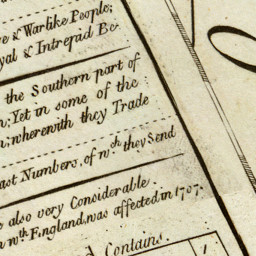 ve & Warlike People;
yal & Intrepid Be-
the Southern part of
n; Yet in some of the
n; wherewith they Trade
ast Numbers, of wch they Send
also very Considerable.
n wth England, was affected in 1707.
d Contains.
1